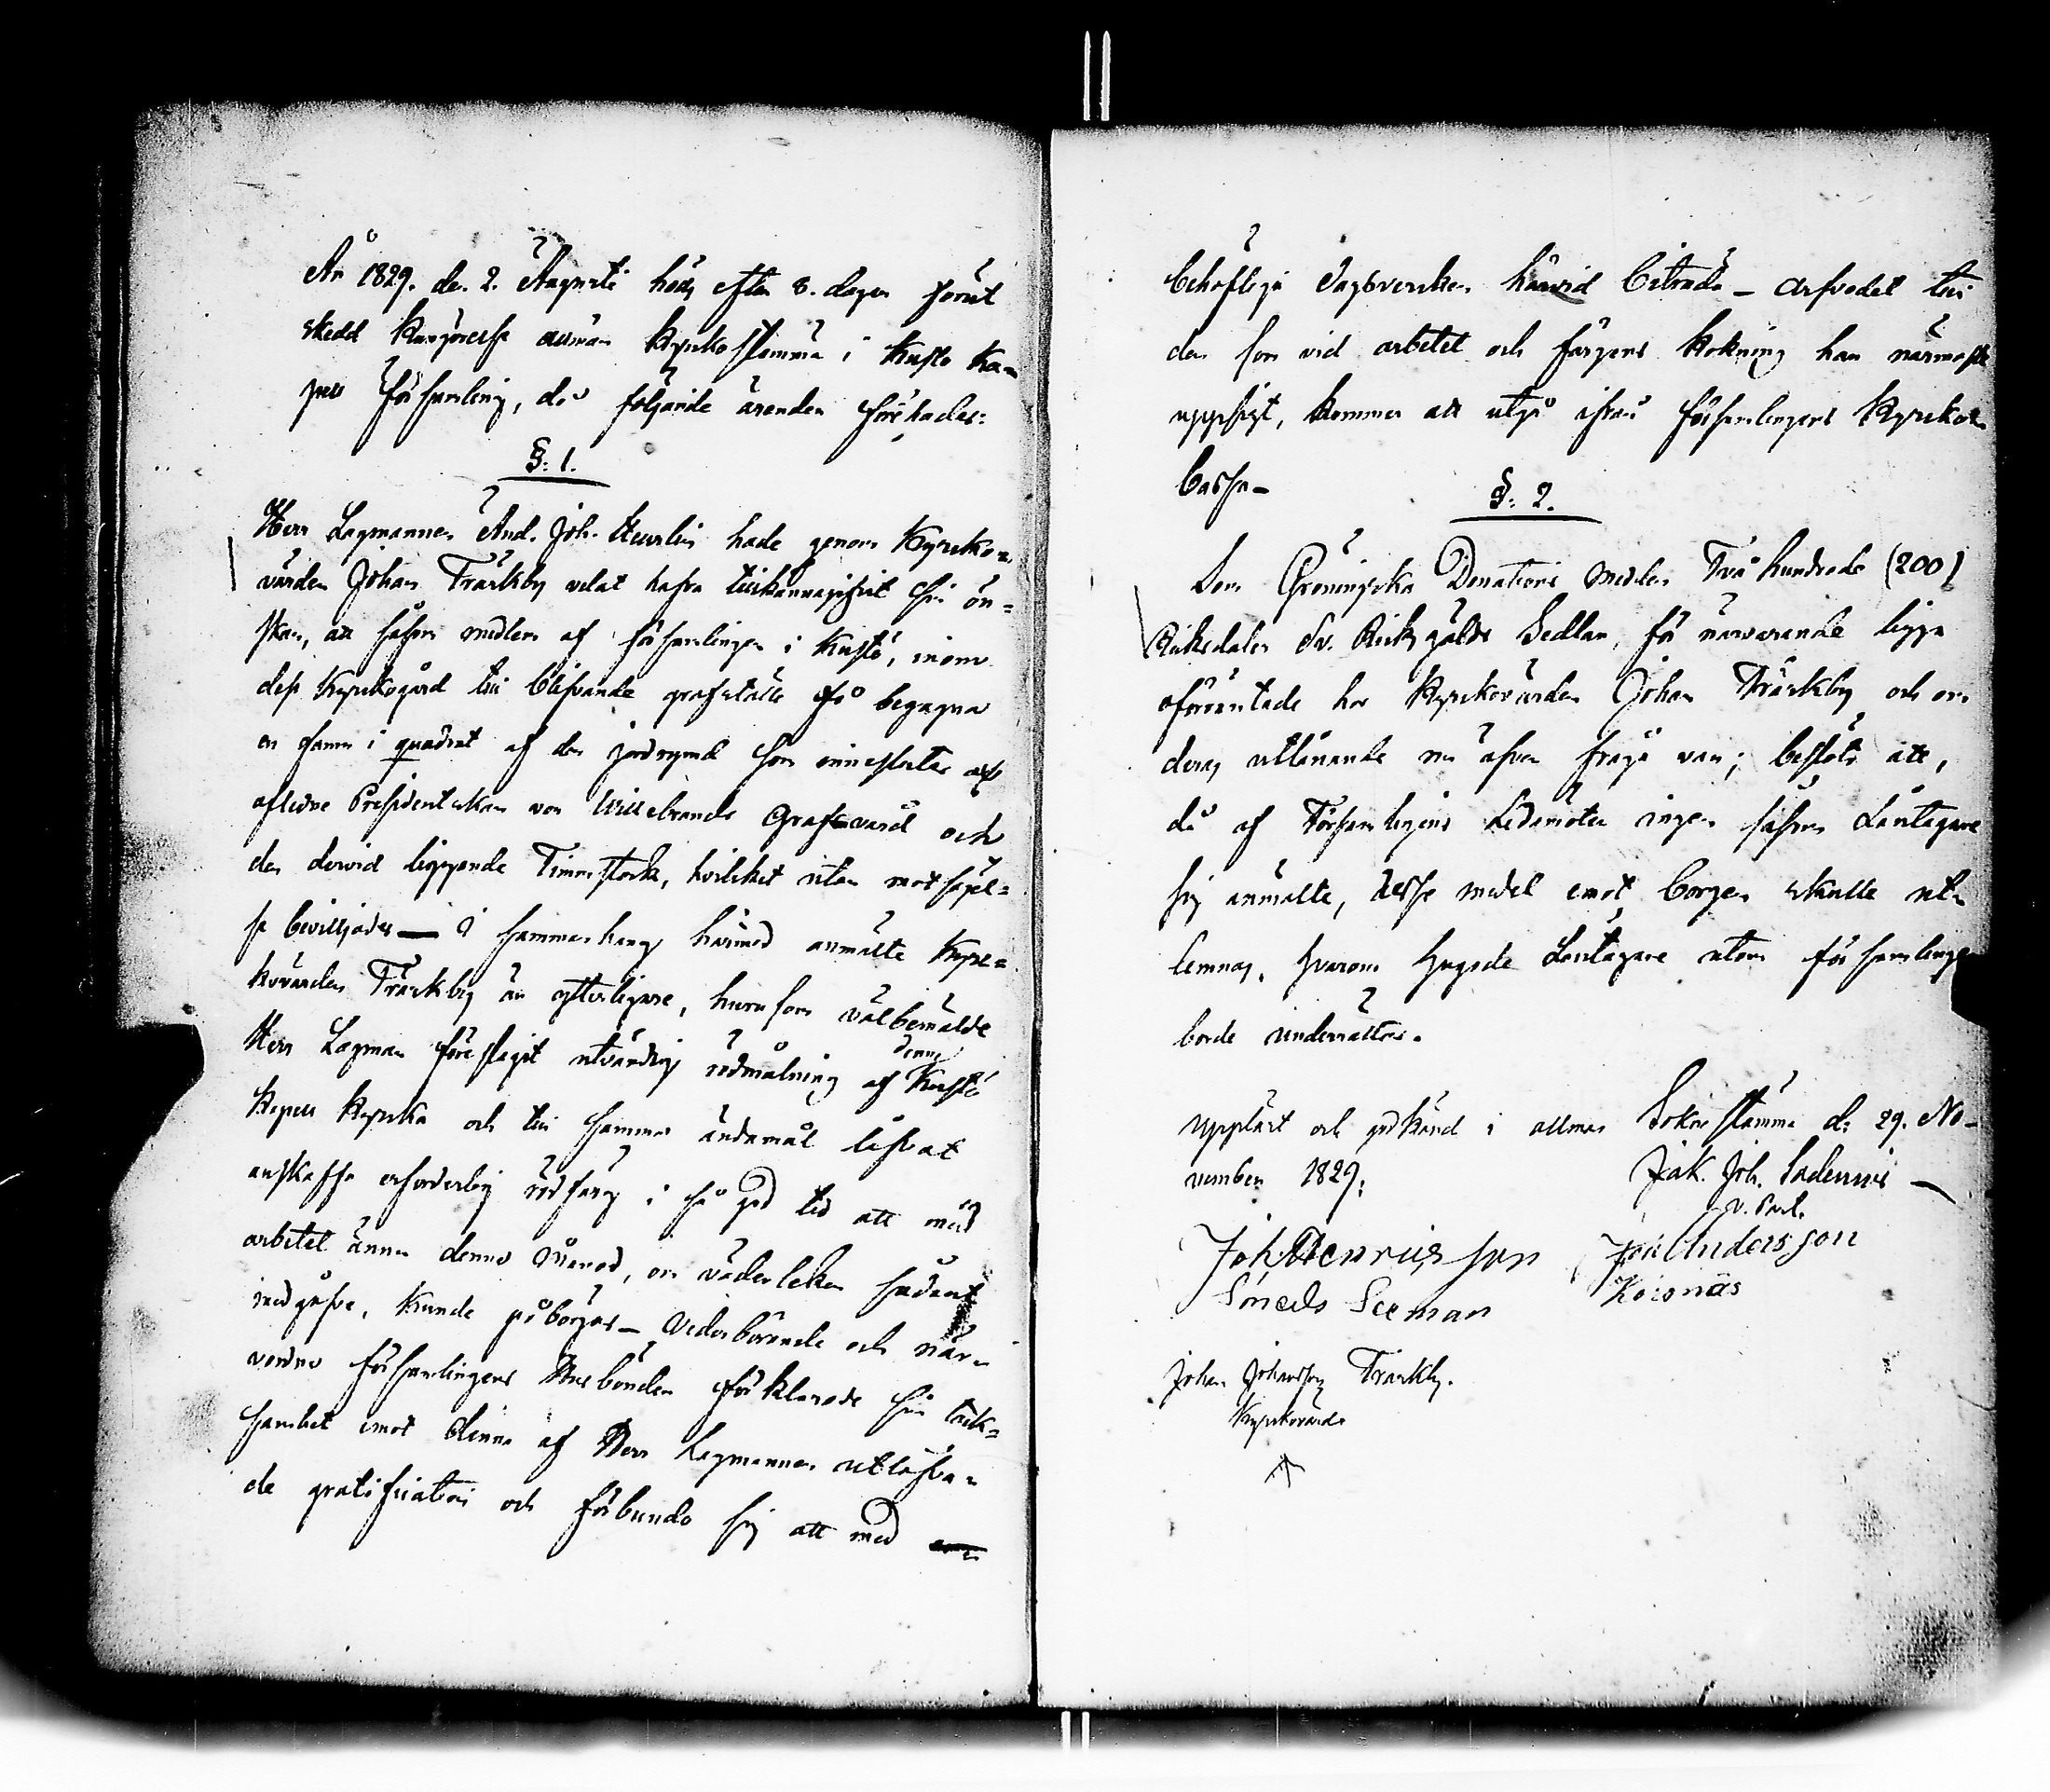 År 1829. den 2. Augusti hölts efter 8. dagar förut
skedd kungörelse allmän Kyrkostämma i Kustö Ka=
pell församling, då följande ärenden förehades:
§: 1.
Herr Lagmannen And. Joh. Heurlin hade genom Kyrko=
värden Johan Träskby velat hafva tillkännagifvit sin ön=
skan, att såsom medlem af församlingen i Kustö, inom
dess Kyrkogård till blifvande grafställe få begagna
en famn i quadrat af den jordrymd som inneslutes af
aflidne Presidentskan von Willebrands Grafvård och
den dervid liggande Timmerstock, hvilket utan motsägel=
se beviljades — I sammanhang härmed anmälte Kyr=
kovärden Träskby än ytterligare, hurusom välbemälde
Herr Lagman föreslagit utvändig rödmålning af denna Kustö
Kapell Kyrka och till samma ändamål låfvat
anskaffa erforderlig rödfärg i så god tid att med
arbetet ännu denna månad, om väderleken sådant
medgåfve, kunde påbörjas — Vederbörande och när=
varande församlingens Husbönder förklarade sin tack=
samhet emot denna af Herr Lagmannen utlåfva=
de gratification och förbundo sig att med
behöflige dagsverken härvid biträda — arfvodet till
den som vid arbetet och färgens kokning har närmaste
uppsigt, kommer att utgå ifrån församlingens Kyrko=
cassa —
§: 2.
Som Gröningska Donations medlen Två hundrade (200)
Riksdaler Sv. Riksgälds Sedlar, för närvarande ligga
oförräntade hos Kyrkovärden Johan Träskby och om
deras utlånande nu äfven fråga var; beslöts att,
då af Församlingens Ledamöter ingen såsom Låntagare
sig anmälte, desse medel emot borgen skulle ut=
lemnas, hvarom hugade Låntagare utom församlingen
borde underrättas.
Uppläst och godkänd i allmän Sockenstämma d. 29. No-
vember 1829.
Jak. Joh. Sadenius
v. Past.
Joh Henriksson Joh Andersson
Seeman Koronäs
Johan Johansson Träskby.
Kyrkovärd